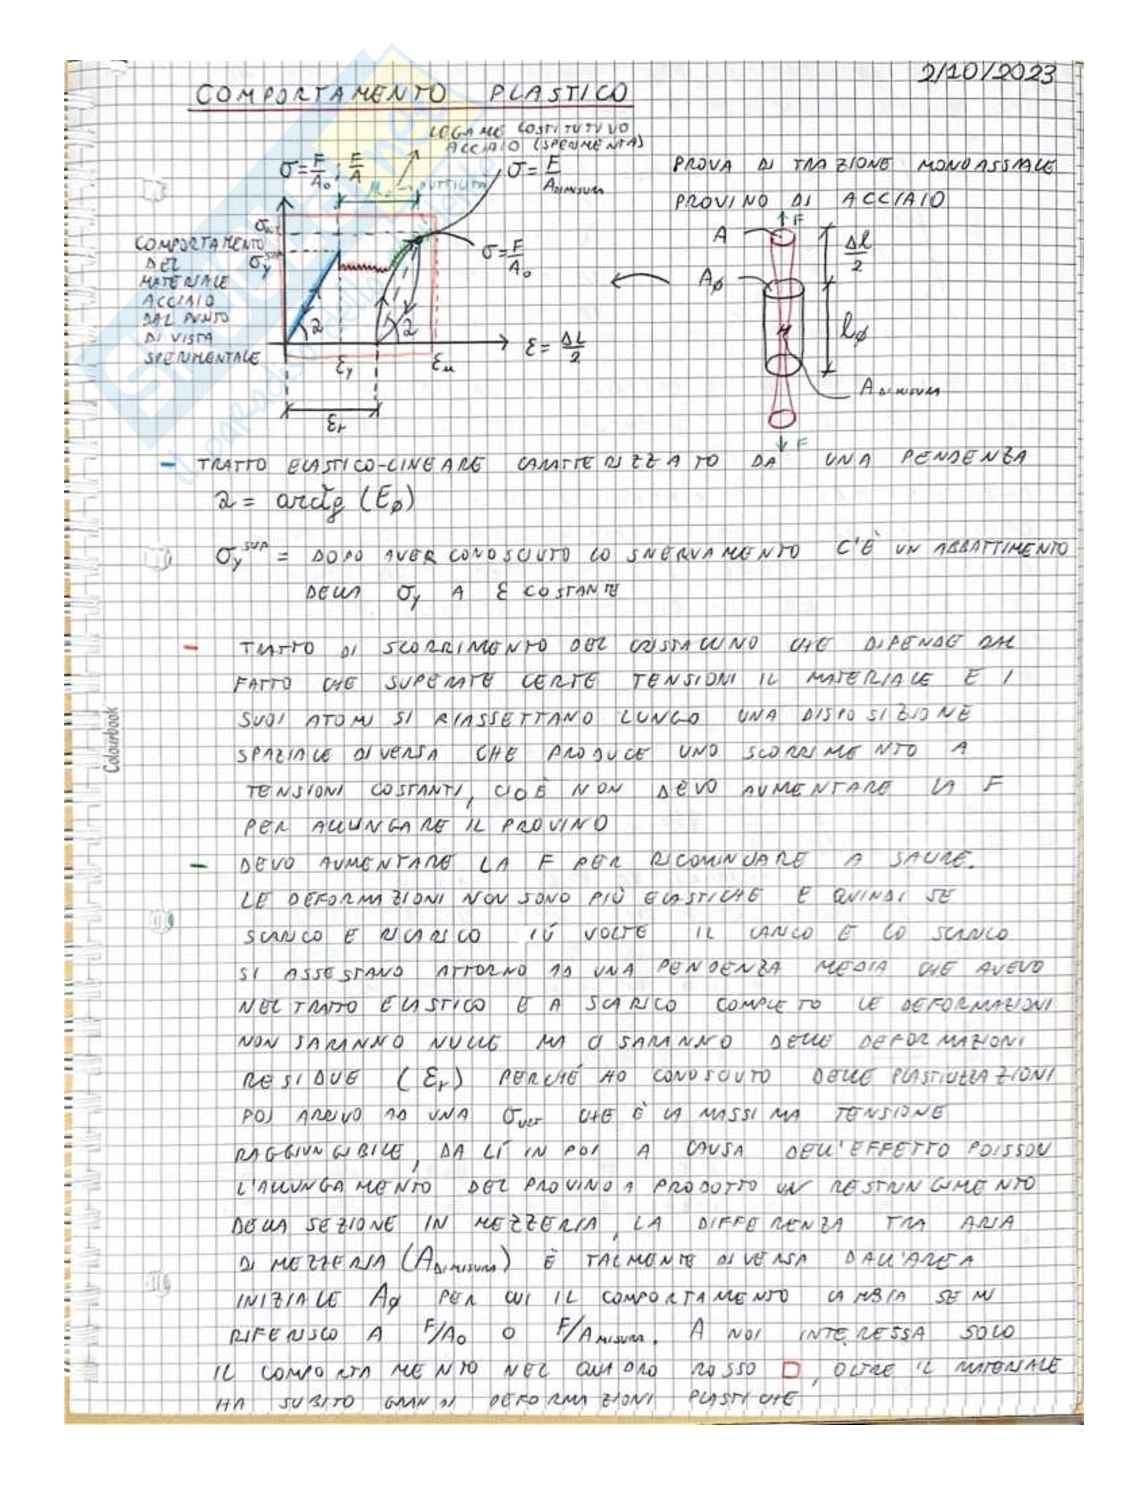 2/10/2023
COMPORTAMENTO PLASTICO
LEGAME COSTITUTIVO
ACCIAIO (SPERIMENTA)
σ = F/A₀ ; F/A
σ = F/A DI MISURA
PROVA DI TRAZIONE MONOASSIALE
PROVINO DI ACCIAIO
COMPORTAMENTO
DEL
MATERIALE
ACCIAIO
DAL PUNTO
DI VISTA
SPERIMENTALE
σy sup
σ = F/A₀
ε = ΔL/2
εy
εu
εr
F
A
AØ
Δl/2
lØ
A DI MISURA
F
- TRATTO ELASTICO-LINEARE CARATTERIZZATO DA UNA PENDENZA
α = arctg (EØ)
σy sup = DOPO AVER CONOSCIUTO LO SNERVAMENTO C'È UN ABBATTIMENTO
DELLA σy A ε COSTANTE
- TRATTO DI SCORRIMENTO DEL CRISTALLINO CHE DIPENDE DAL
FATTO CHE SUPERATE CERTE TENSIONI IL MATERIALE E I
SUOI ATOMI SI RIASSETTANO LUNGO UNA DISPOSIZIONE
SPAZIALE DIVERSA CHE PRODUCE UNO SCORRIMENTO A
TENSIONI COSTANTI, CIOÈ NON DEVO AUMENTARE LA F
PER ALLUNGARE IL PROVINO
- DEVO AUMENTARE LA F PER RICOMINCIARE A SALIRE.
LE DEFORMAZIONI NON SONO PIÙ ELASTICHE E QUINDI SE
SCARICO E RICARICO VOLTE IL CARICO E LO SCARICO
SI ASSESTANO ATTORNO AD UNA PENDENZA MEDIA CHE AVEVO
NEL TRATTO ELASTICO E A SCARICO COMPLETO LE DEFORMAZIONI
NON SARANNO NULLE MA CI SARANNO DELLE DEFORMAZIONI
RESIDUE (εr) PERCHÉ HO CONOSCIUTO DELLE PLASTICIZZAZIONI
POI ARRIVO AD UNA σ CHE È LA MASSIMA TENSIONE
RAGGIUNGIBILE, DA LÌ IN POI A CAUSA DELL'EFFETTO POISSON
L'ALLUNGAMENTO DEL PROVINO A PRODOTTO UN RESTRINGIMENTO
DELLA SEZIONE IN MEZZERIA, LA DIFFERENZA TRA ARIA
DI MEZZERIA (A DI MISURA) È TALMENTE DIVERSA DALL'AREA
INIZIALE AØ PER CUI IL COMPORTAMENTO CAMBIA SE MI
RIFERISCO A F/A₀ O F/A MISURA. A NOI INTERESSA SOLO
IL COMPORTAMENTO NEL QUADRO ROSSO □, OLTRE IL MATERIALE
HA SUBITO GRANDI DEFORMAZIONI PLASTICHE
Colourbook